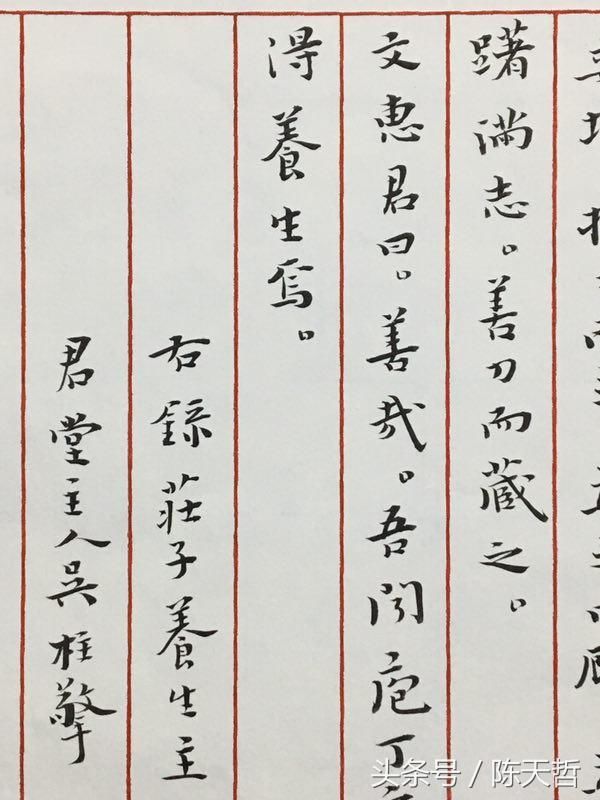 躇滿志。善刀而藏之。
文惠君曰。善哉。吾聞庖丁
得養生焉。
右錄莊子養生主
君堂主人吳柱擎
头条号 / 陈天哲